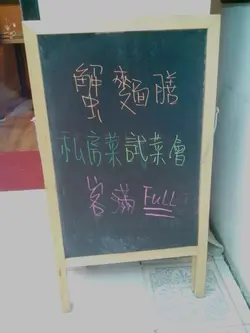 蟹麵膳
私房菜試菜會
客滿 Full